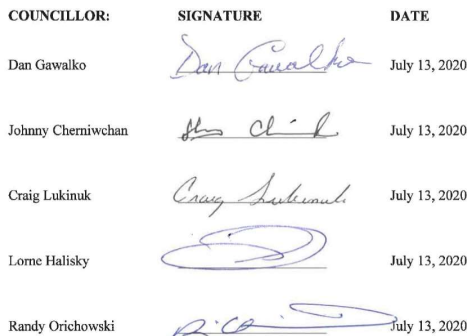 COUNCILLOR: SIGNATURE DATE
Dan Gawalko Dan Gawalko July 13, 2020
Johnny Cherniwchan July 13, 2020
Craig Lukinuk Craig Lukinuk July 13, 2020
Lorne Halisky July 13, 2020
Randy Orichowski July 13, 2020